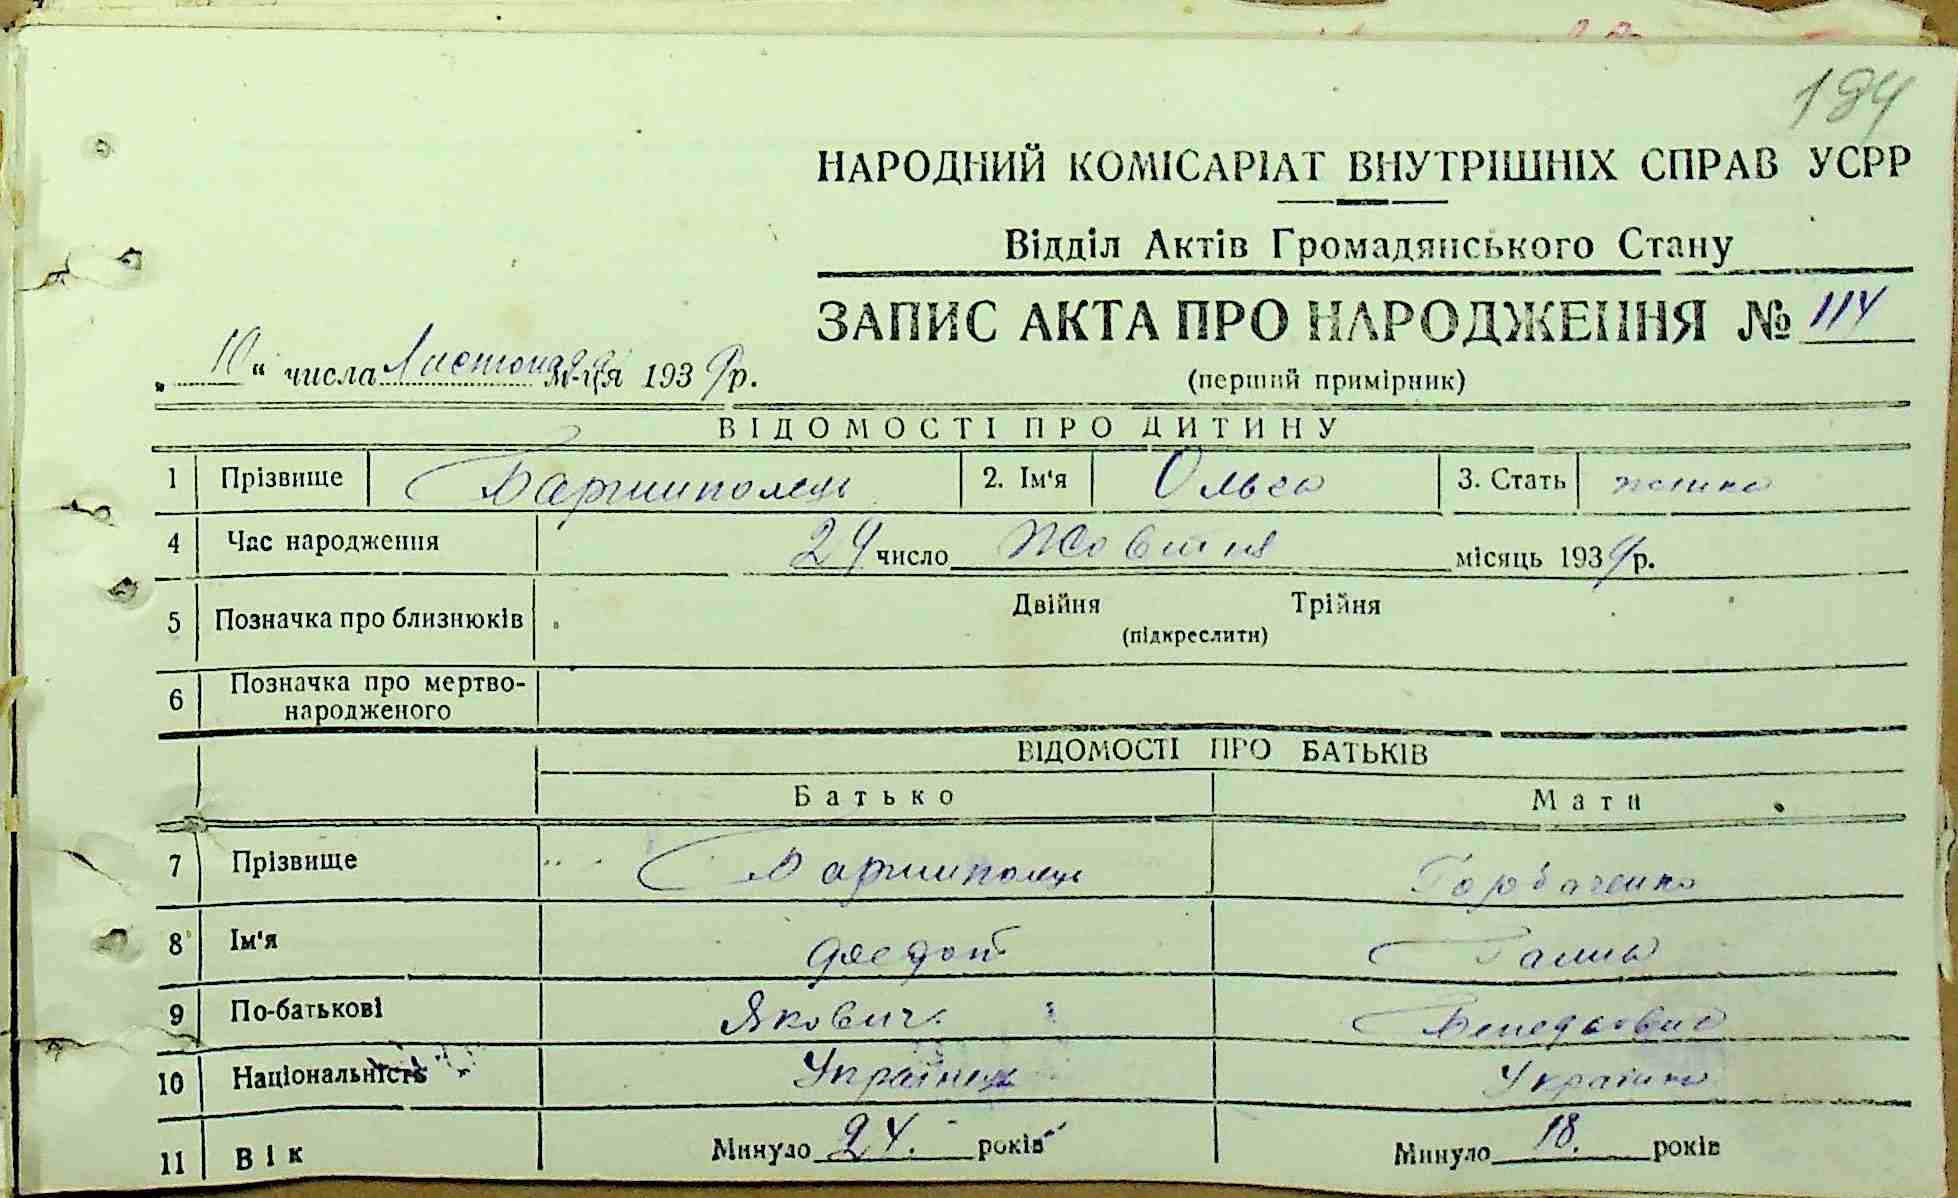 184
НАРОДНИЙ КОМІСАРІАТ ВНУТРІШНІХ СПРАВ УСРР
Відділ Актів Громадянського Стану
ЗАПИС АКТА ПРО НАРОДЖЕННЯ № 114
„ 10 “ числа Листопада м-ця 1939 р.
(перший примірник)
ВІДОМОСТІ ПРО ДИТИНУ
1 Прізвище 2. Ім'я Ольга 3. Стать жіноча
4 Час народження 24 число Жовтня місяць 1939 р.
5 Позначка про близнюків Двійня Трійня
(підкреслити)
6 Позначка про мертво-
народженого
ВІДОМОСТІ ПРО БАТЬКІВ
Батько Мати
7 Прізвище Горбаченко
8 Ім'я Федот
9 По-батькові Якович
10 Національність Українец Українка
11 Вік Минуло 24. років Минуло 18. років